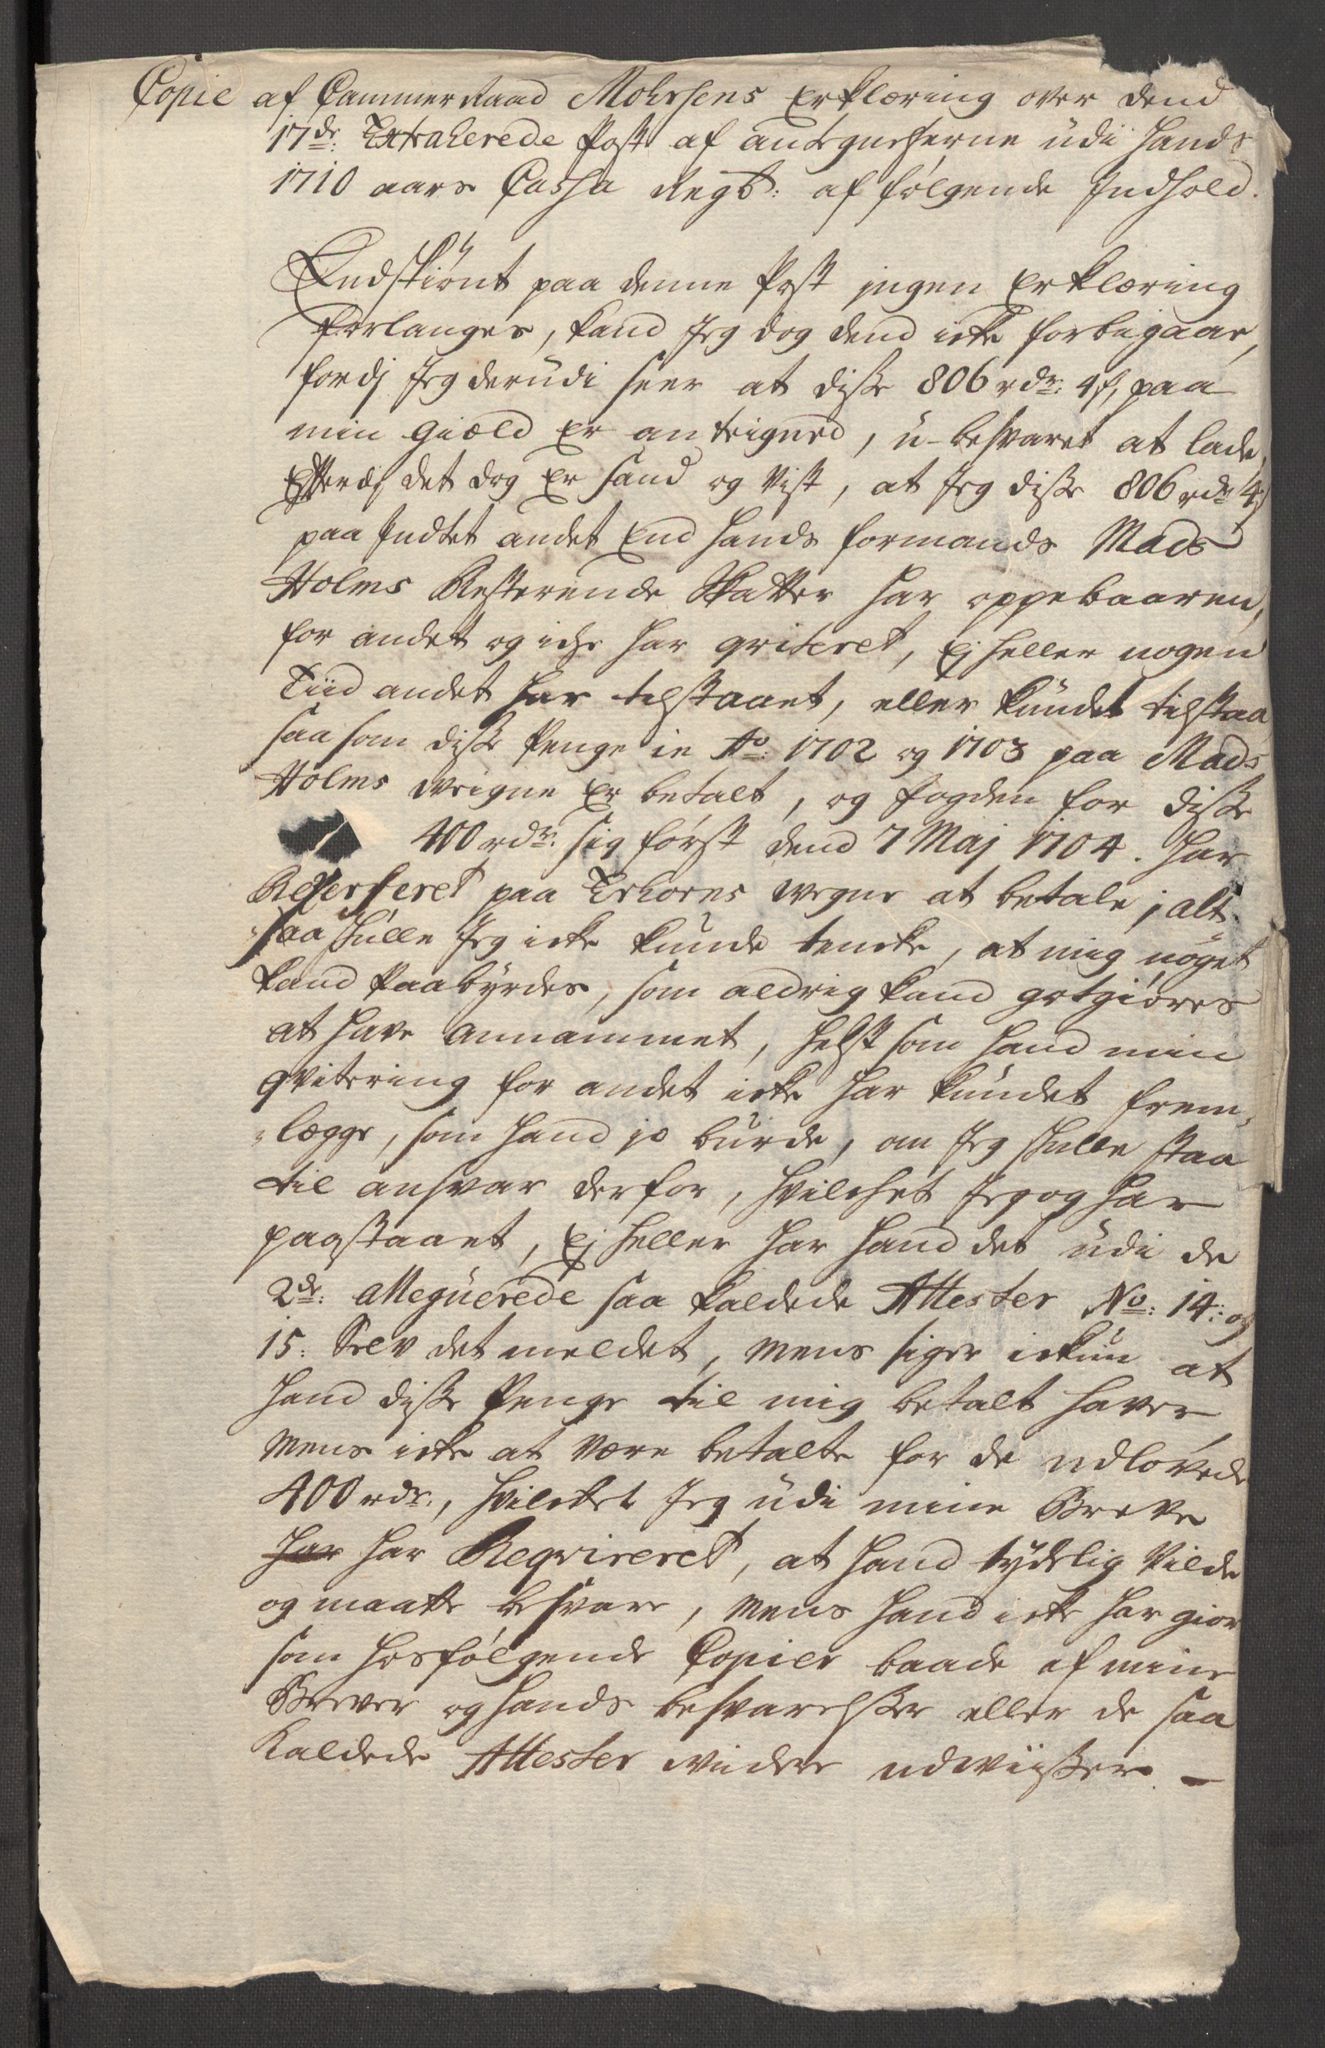 Copie af Cammer Raad Mohrsens Erklæring over dend
17de: Extraherede Post af antegnelserne udi hands
1710 aars Cassa Regb: af følgende Indhold.
Endskiønt paa denne Post ingen Erklæring
forlanges, kand Jeg dog dend icke forbigaae,
fordj Jeg derudi seer at disse 806 rdr: 4 s, paa
min Giæld er anteigned, u-besvaret at lade,
Efterdj det dog er sand og vist, at Jeg disse 806 rdr 4 s
paa Indtet andet End hands formands Mads
Holms Resterende Skatter har oppebaaren,
for andet og icke har qviteret, Ej heller nogen
Tiid andet har tilstaaet, eller kundet tilstaa
saasom disse Penge in Ao: 1702 og 1703 paa Mads
Holms weigne er betalt, og fogden for disse
400 rdr: sig først dend 7 Maj 1704. har
paa wegne at betale, alt-
saa skulle Jeg icke kunde tencke, at mig noget
kand Paabyrdes, som aldrig kand gotgiøres
at have annammet, helst som hand min
qvitering for andet icke har kundet frem-
lægge, som hand jo burde, om Jeg skulle staa
til ansvar derfor, hvilchet Jeg og har
paastaaet, Ej heller har hand det udi de
2de: Alleguerede saa kaldede Attester No: 14: og
15: Selv det meldet, mens siger ickun at
hand disse Penge til mig betalt haver,
mens icke at være betalte for de udlovede
400 rdr:, hvilcket Jeg udi mine Breve
har har Reqvireret, at hand tydelig vilde
og maatte besvare, mens hand icke har giort
som hosfølgende Copier baade af mine
Brever og hands besvarelsser eller de saa
kaldede Attester widere udwiisser. –